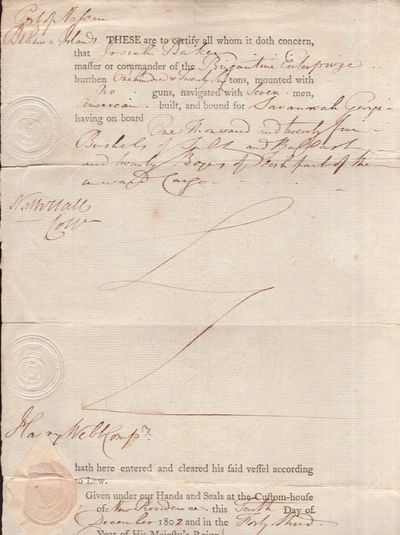 Port of Nassau
Bahama Islands THESE are to certify all whom it doth concern,
that Josiah Baker
maſter or commander of the Brigantine Enterprize
burthen One hundred & Twenty Six tons, mounted with
No guns, navigated with Seven men,
American built, and bound for Savannah Georgia
having on board
One Thousand and twenty five
Bushels of Salt and Ballast
and twenty Boxes of Fish part of the
inward Cargo
Natt Hall
Collr
Harry Webb Compr.
hath here entered and cleared his ſaid veſſel according
to Law.
Given under our Hands and Seals at the Cuſtom-houſe
of New Providence this Tenth Day of
December 1802 and in the Forty third
Year of His Majeſty's Reign